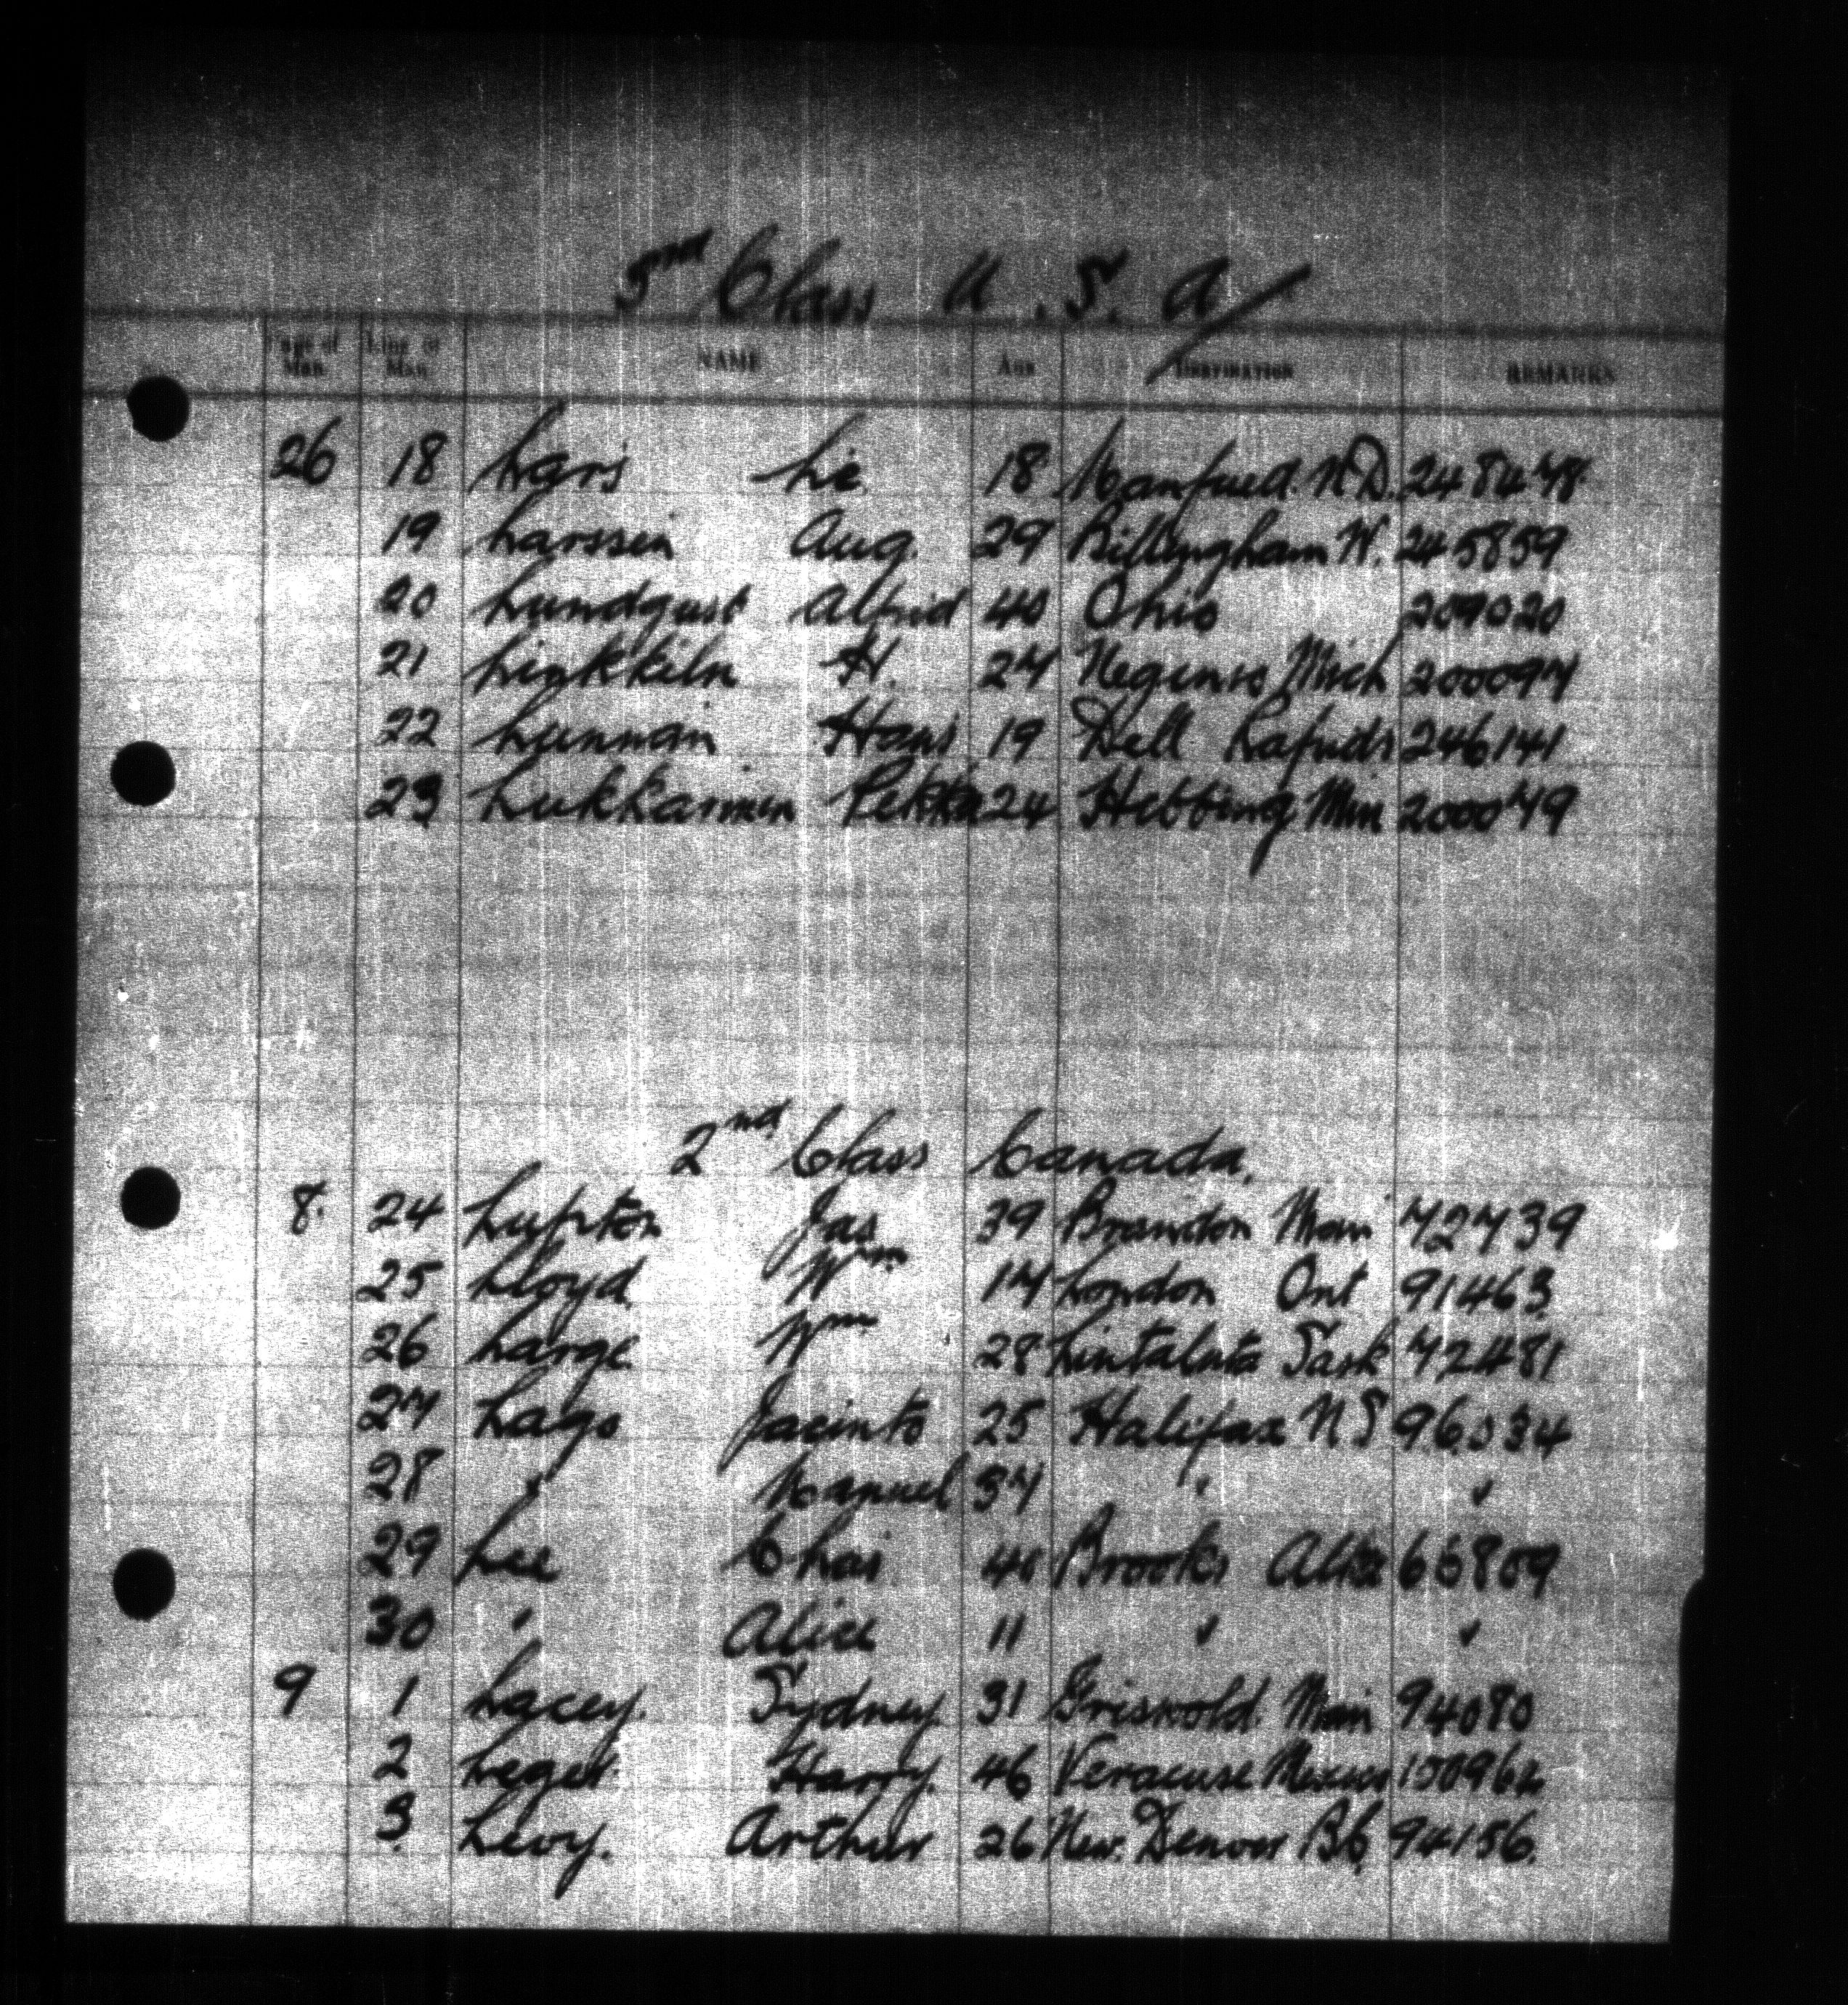 3rd Class U.S.A/
Page of Man. Line of Man. NAME AGE DESTINATION REMARKS
26 18 Lars Lie 18 Manfred. N.D. 248478
19 Larssen Aug. 29 Billingham W. 245859
20 Lundqust Alfrid 40 Ohio 209020
21 H. 24 Mich 200097
22 Hans 19 Dell Rapids 246141
23 Pekka 24 Hibbing Min 200079
2nd Class Canada.
8. 24 Lupton Jas 39 Brandon Man 72739
25 Lloyd Wm 17 London Ont 91463
26 Large Wm 28 Sask 72481
27 Lago Jacinto 25 Halifax NS 96034
28 " Manuel 37 " "
29 Lee Chas 40 Brooks Alta 66809
30 " Alice 11 " "
9 1 Lacey. Sydney. 31 Griswold. Man 94080
2 Leger Harry. 46 Veracuse Mexico 150962
3 Levy. Arthur 26 New. Denver BC 94156.